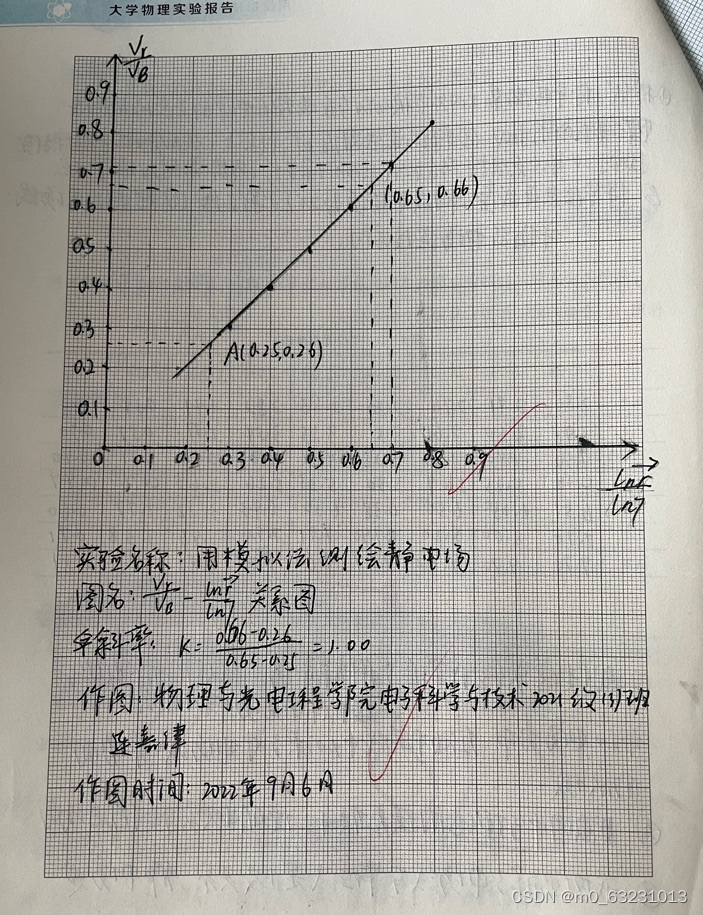 大学物理实验报告
Vr
VB
0.9
0.8
0.7
0.6
0.5
0.4
0.3
0.2
0.1
(0.65, 0.66)
A(0.25,0.26)
0 0.1 0.2 0.3 0.4 0.5 0.6 0.7 0.8 0.9
ln r
ln r
实验名称: 用模拟法测绘静电场
图名: Vr/VB - ln r/ln r 关系图
斜率: K= 0.66-0.26 / 0.65-0.25 = 1.00
作图: 物理与光电工程学院电子科学与技术2021级(1)班
连嘉律
作图时间: 2022年9月6日
CSDN @m0_63231013